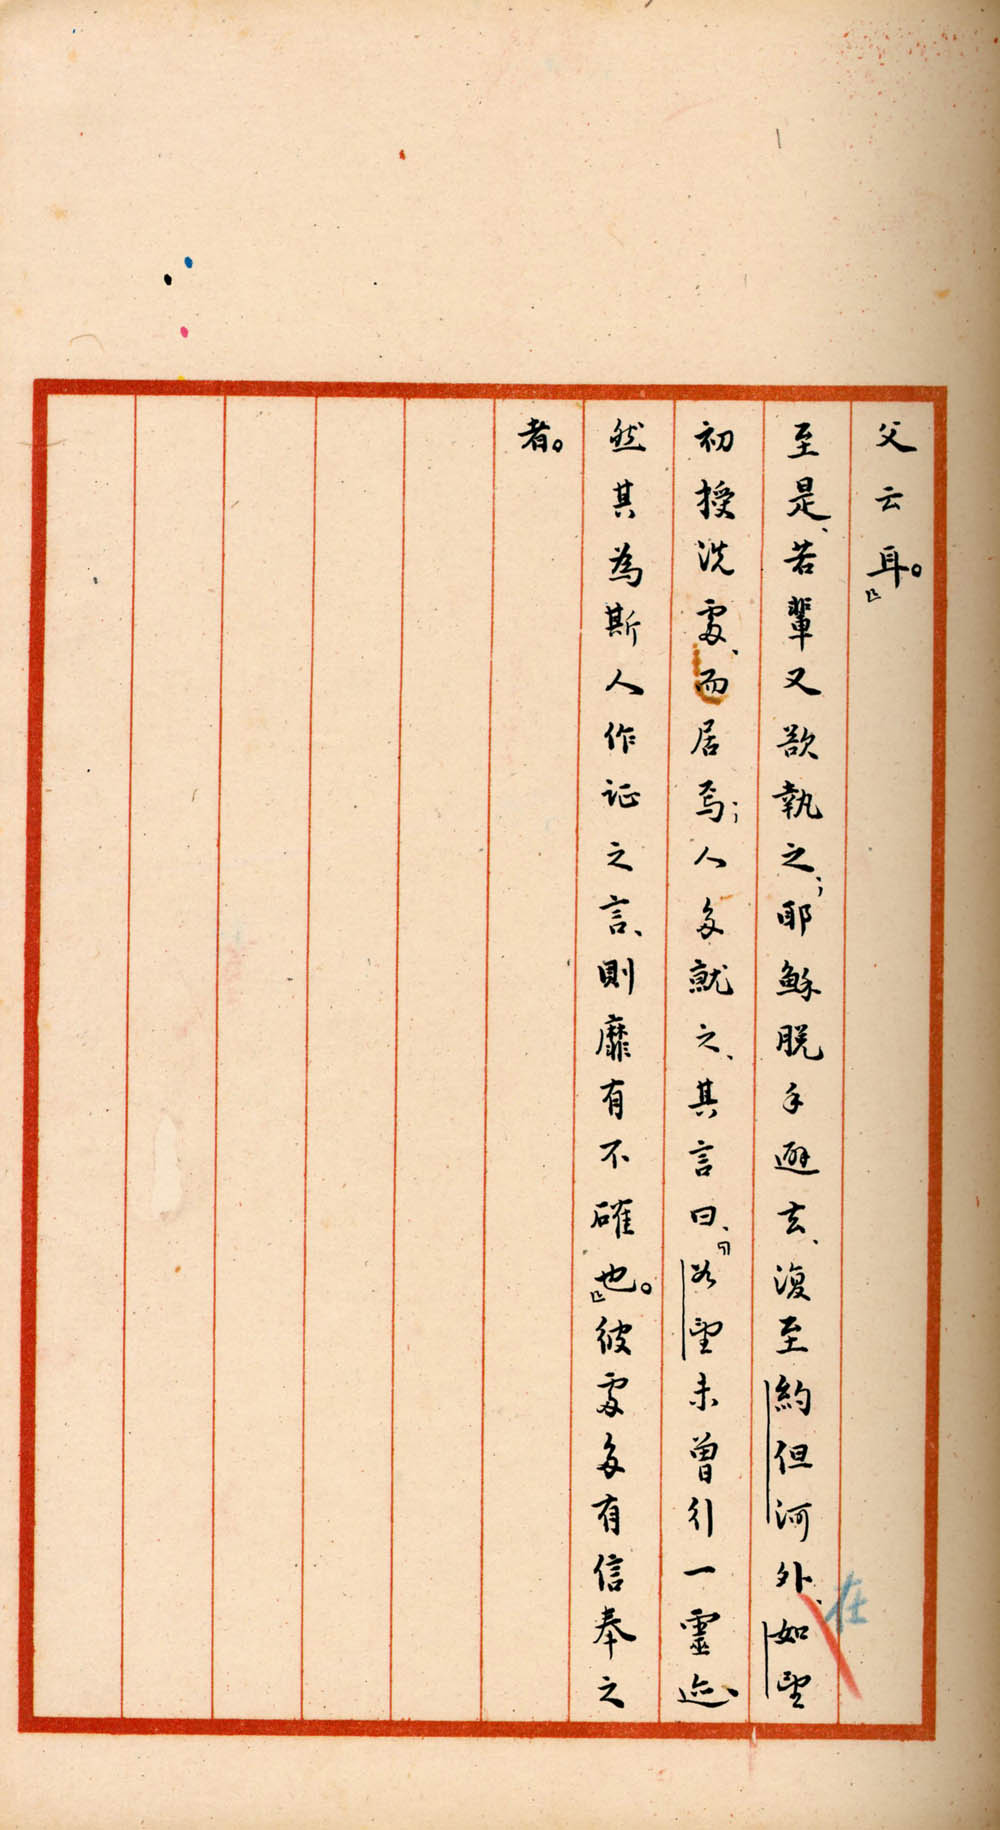 父云耳。』
至是、若輩又欲執之；耶穌脫手避去、復至約但河外、如望
在
初授洗處、而居焉；人多就之、其言曰、『如望未曾引一靈迹、
然其為斯人作証之言、則靡有不確也。』彼處多有信奉之
者。